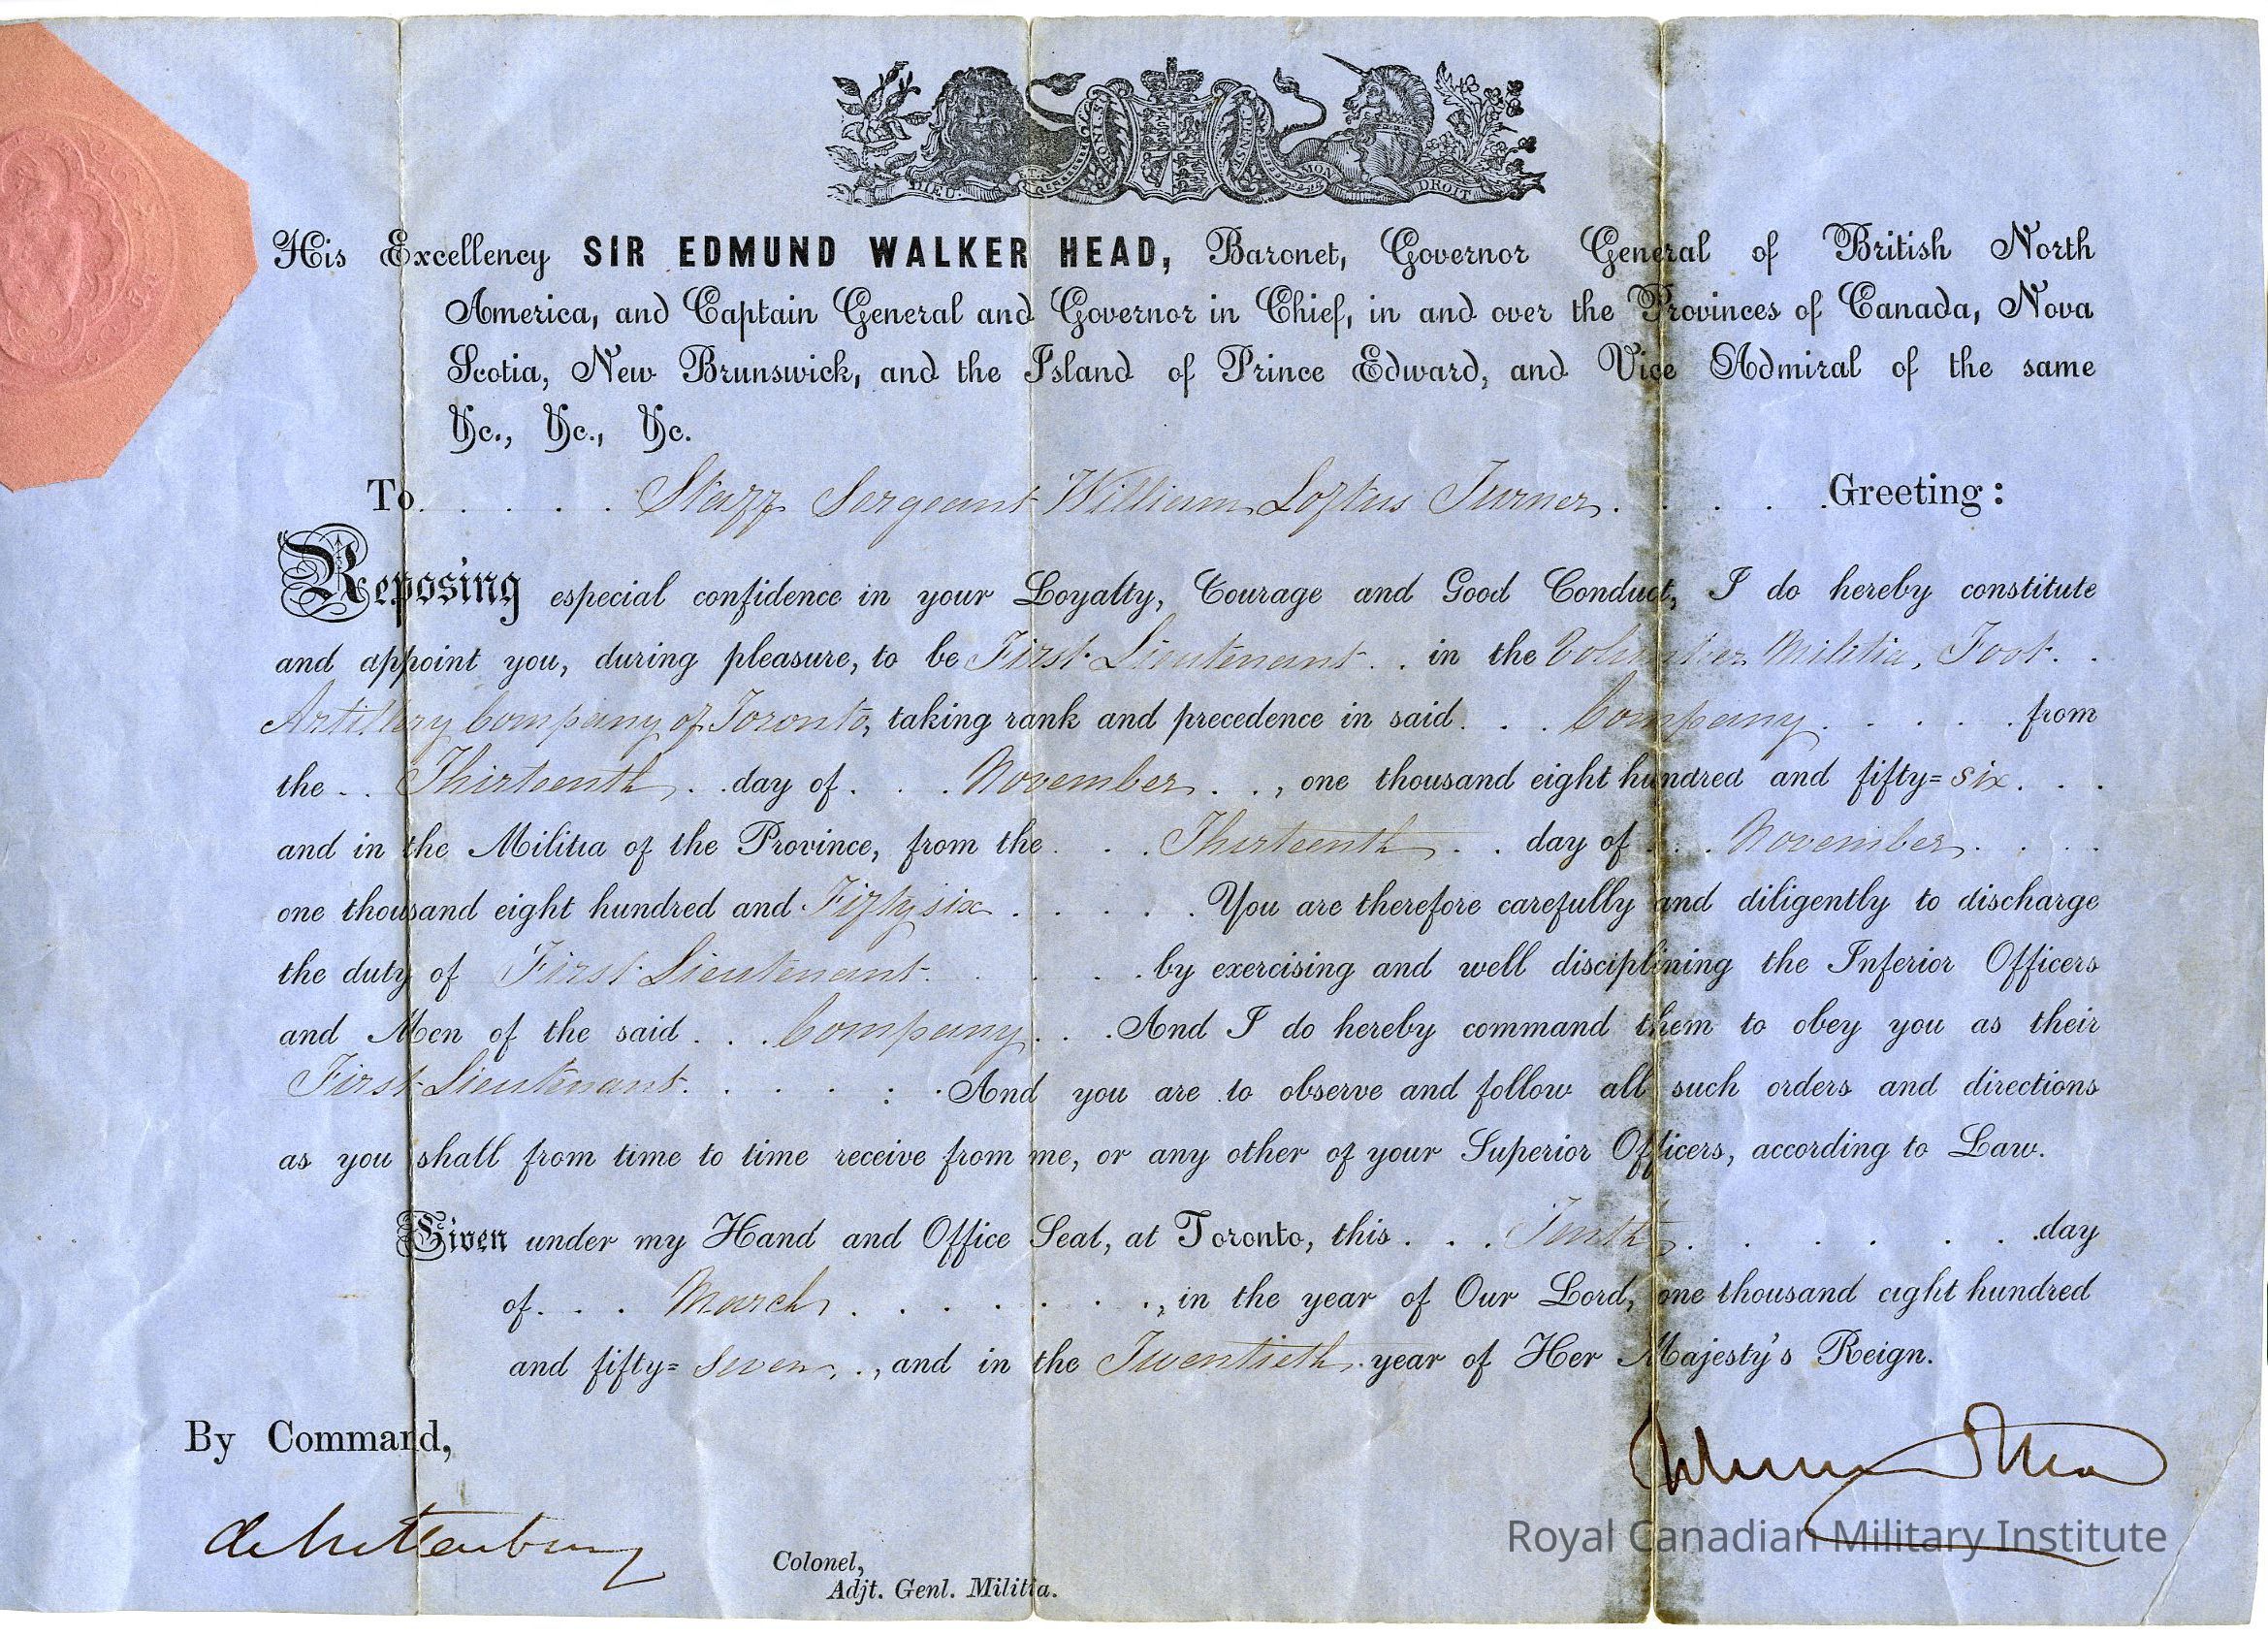 HONI SOIT QUI MAL Y PENSE
DIEU ET MON DROIT
His Excellency SIR EDMUND WALKER HEAD, Baronet, Governor General of British North
America, and Captain General and Governor in Chief, in and over the Provinces of Canada, Nova
Scotia, New Brunswick, and the Island of Prince Edward, and Vice Admiral of the same
&c., &c., &c.
To . . . . . Staff Sergeant William Loftus Turner . . . . . Greeting:
Reposing especial confidence in your Loyalty, Courage and Good Conduct, I do hereby constitute
and appoint you, during pleasure, to be First Lieutenant . . in the Volunteer Militia, Foot . .
Artillery Company of Toronto, taking rank and precedence in said . . . Company . . . . . from
the . . Thirteenth . . day of . . . November . . , one thousand eight hundred and fifty=six . . .
and in the Militia of the Province, from the . . . Thirteenth . . day of . . . November . . . .
one thousand eight hundred and Fifty six . . . . . You are therefore carefully and diligently to discharge
the duty of First Lieutenant . . . . by exercising and well disciplining the Inferior Officers
and Men of the said . . . Company . . . And I do hereby command them to obey you as their
First Lieutenant . . . . : . And you are to observe and follow all such orders and directions
as you shall from time to time receive from me, or any other of your Superior Officers, according to Law.
Given under my Hand and Office Seal, at Toronto, this . . . Tenth . . . . . . day
of . . . March . . . . . . . , in the year of Our Lord, one thousand eight hundred
and fifty= seven . . , and in the Twentieth . year of Her Majesty's Reign.
By Command,
Edmund Head
de Rottenburg
Colonel,
Adjt. Genl. Militia.
Royal Canadian Military Institute